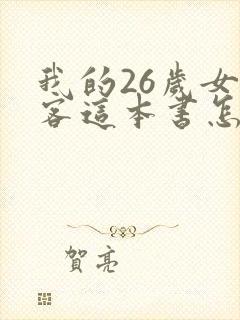 我的26歲女
客這本書怎
賀亮